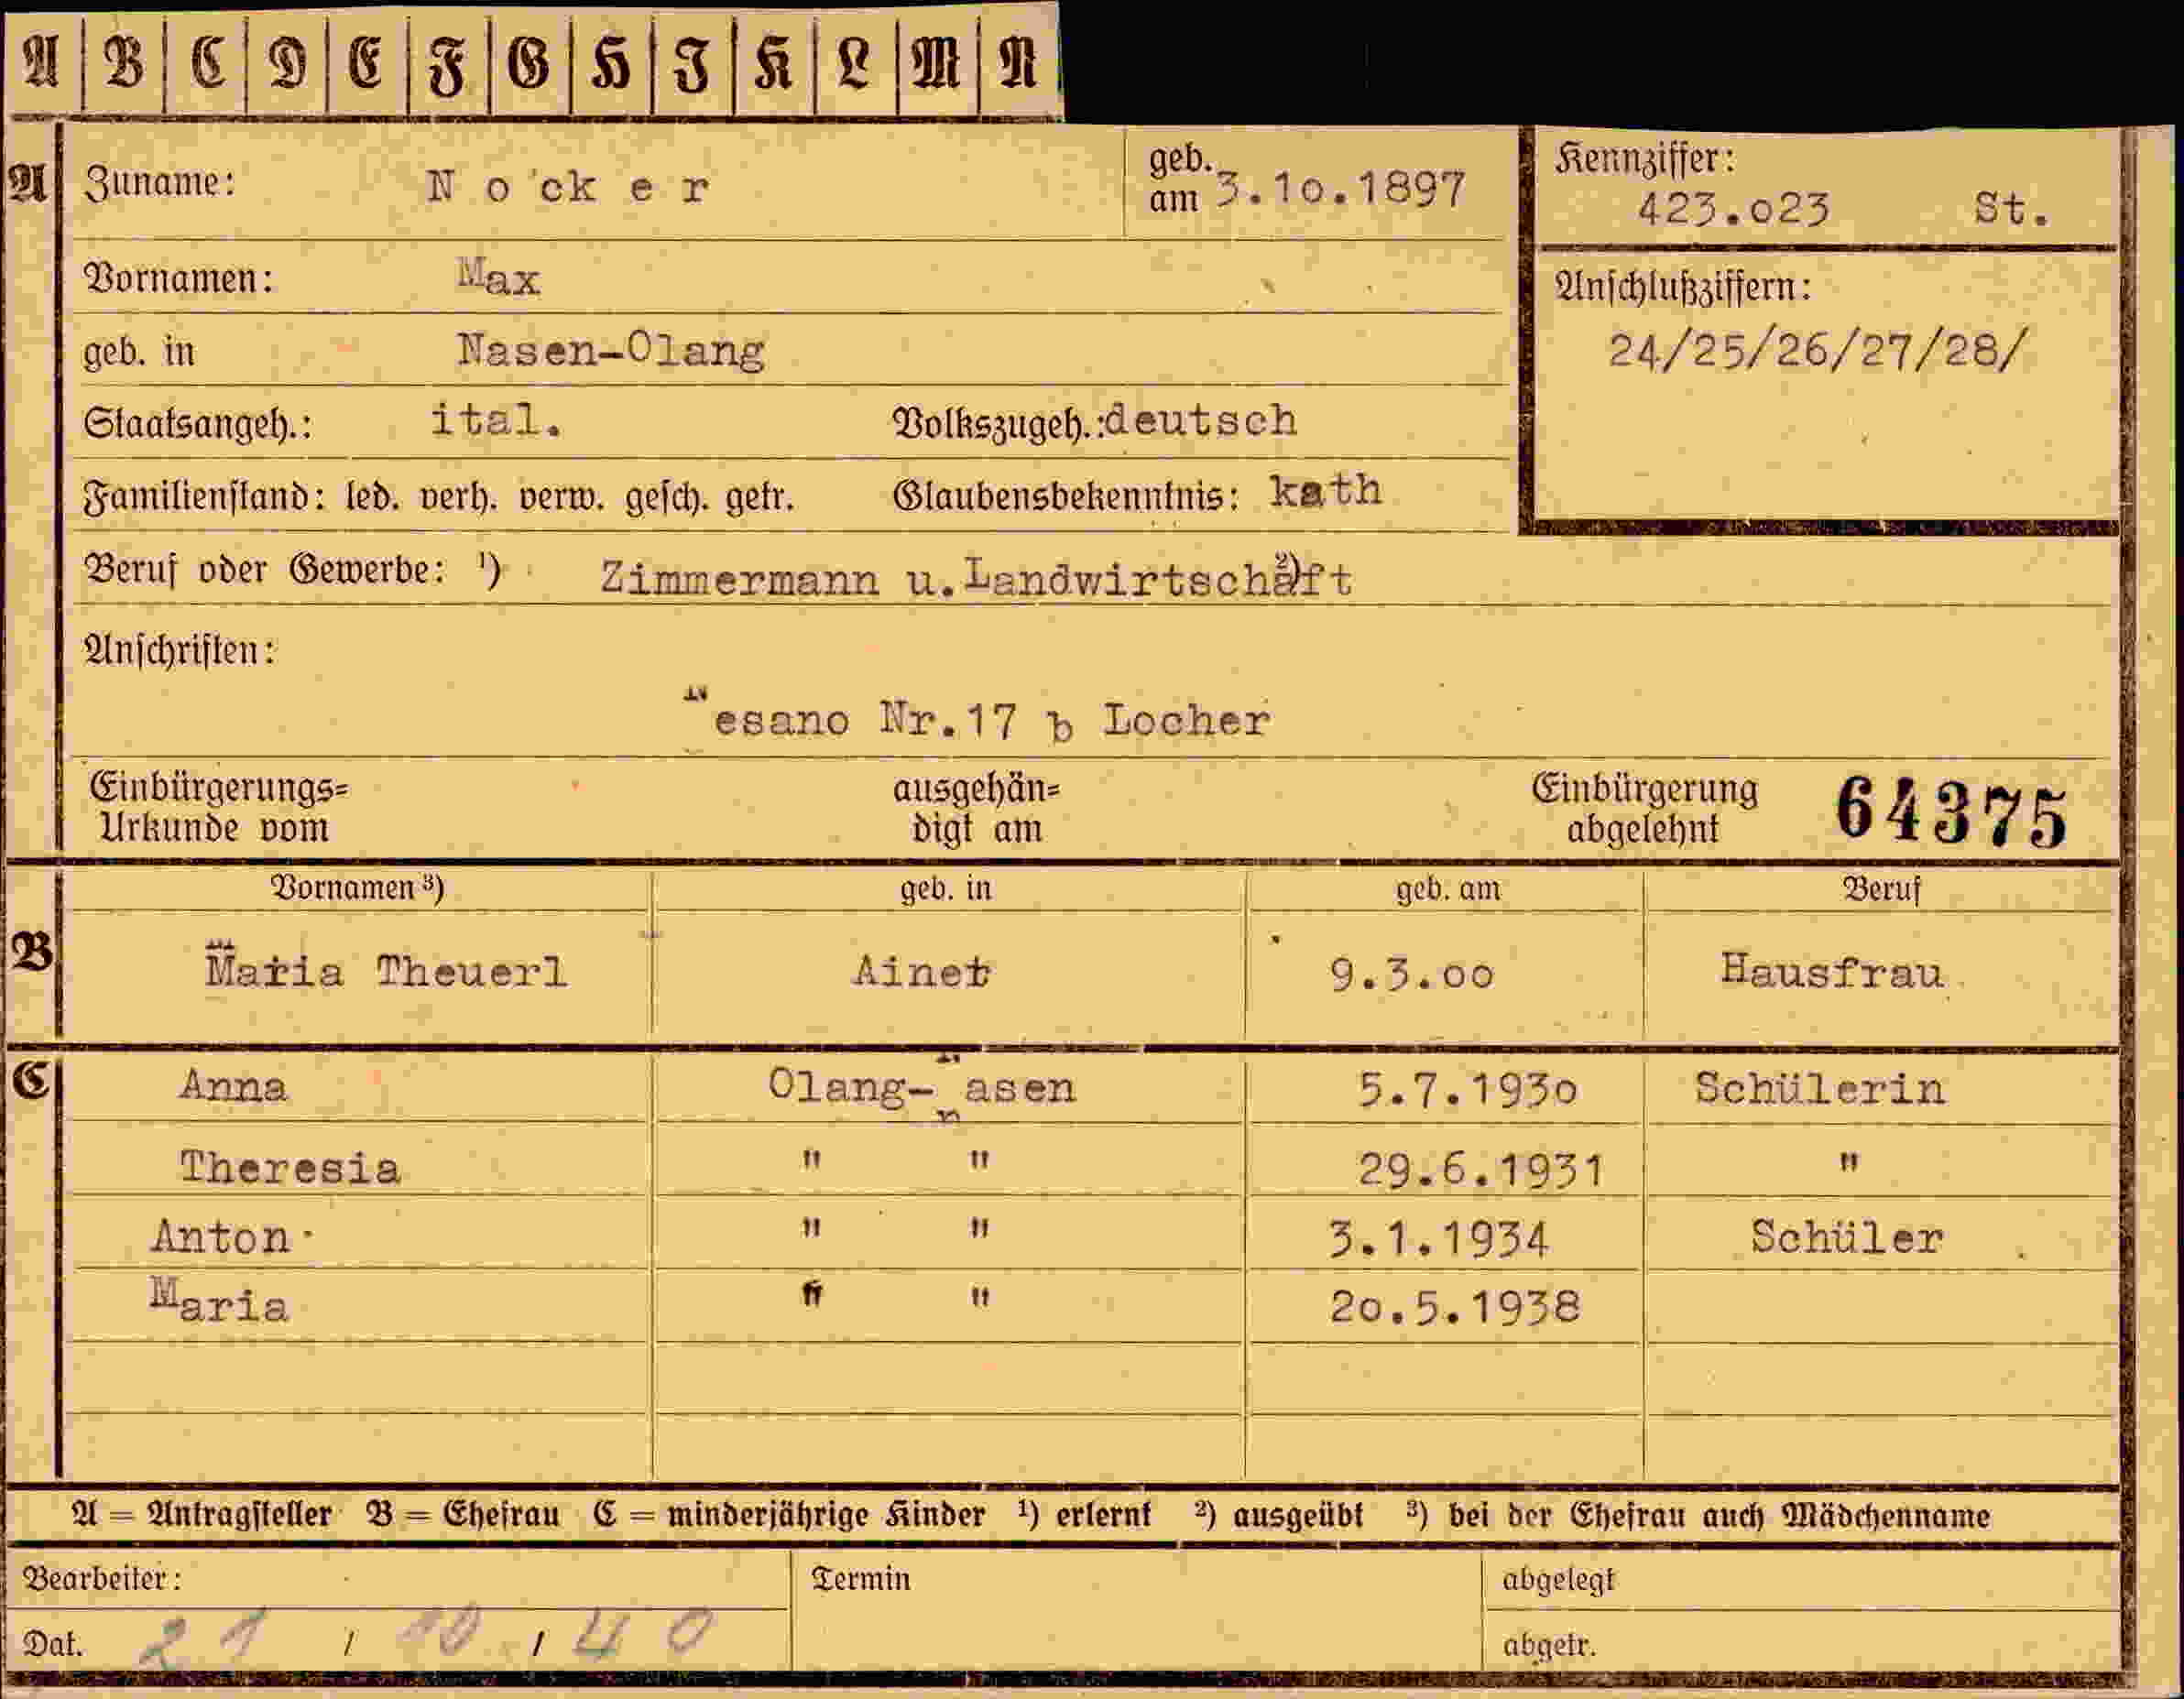 A B C D E F G H I K L M N
A Zuname: Nocker geb. am 3.10.1897 Kennziffer:
423.023 St.
Vornamen: Max Anschlußziffern:
geb. in Nasen-Olang 24/25/26/27/28/
Staatsangeh.: ital. Volkszugeh.: deutsch
Familienstand: led. verh. verw. gesch. getr. Glaubensbekenntnis: kath
Beruf oder Gewerbe: ¹) Zimmermann u. Landwirtschaft ²)
Anschriften:
Nesano Nr.17 b Locher
Einbürgerungs= ausgehän= Einbürgerung 64375
Urkunde vom digt am abgelehnt
Vornamen ³) geb. in geb. am Beruf
B Maria Theuerl Ainet 9.3.00 Hausfrau
C Anna Olang-Nasen 5.7.1930 Schülerin
Theresia " " 29.6.1931 "
Anton " " 3.1.1934 Schüler
Maria " " 20.5.1938
A = Antragsteller B = Ehefrau C = minderjährige Kinder ¹) erlernt ²) ausgeübt ³) bei der Ehefrau auch Mädchenname
Bearbeiter: Termin abgelegt
Dat. 21 / 10 / 40 abgetr.